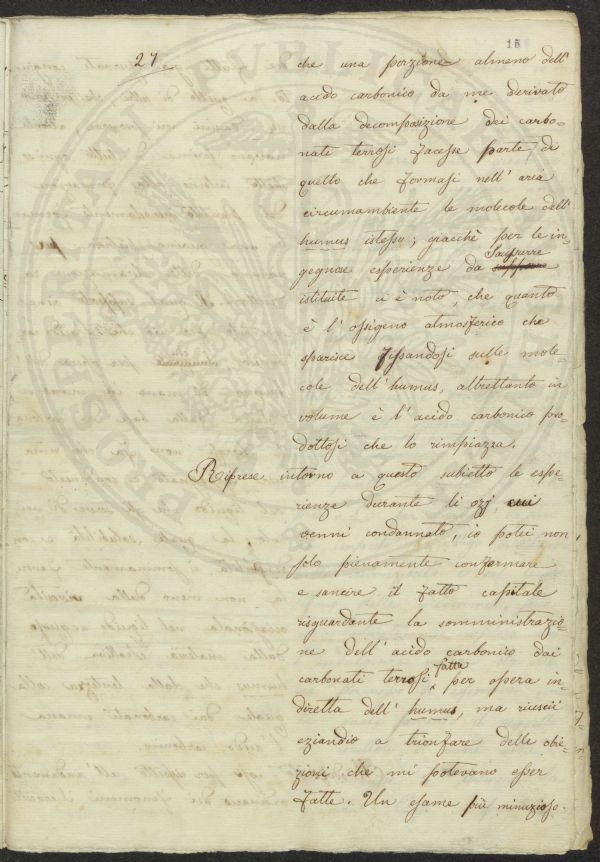 15
27
che una porzione almeno dell'
acido carbonico da me derivato
dalla decomposizione dei carbo=
nati terrosi facesse parte di
quello che formasi nell' aria
circumambiente le molecole dell'
humus istesso; giacchè per le in=
gegnose esperienze da Saussurre
istituite ci è noto, che quanto
è l' ossigeno atmosferico che
sparisce fissandosi sulle mole=
cole dell' humus, altrettanto in
volume è l' acido carbonico pro=
dottosi che lo rimpiazza.
Riprese intorno a questo subietto le espe=
rienze durante li ozj, cui
venni condannato, io potei non
solo pienamente confermare
e sancire il fatto capitale
risguardante la somministrazio=
ne dell' acido carbonico dai
carbonati terrosi fatta per opera in=
diretta dell' humus, ma riuscii
eziandio a trionfare delle obie=
zioni che mi potevano esser
fatte. Un esame più minuzioso